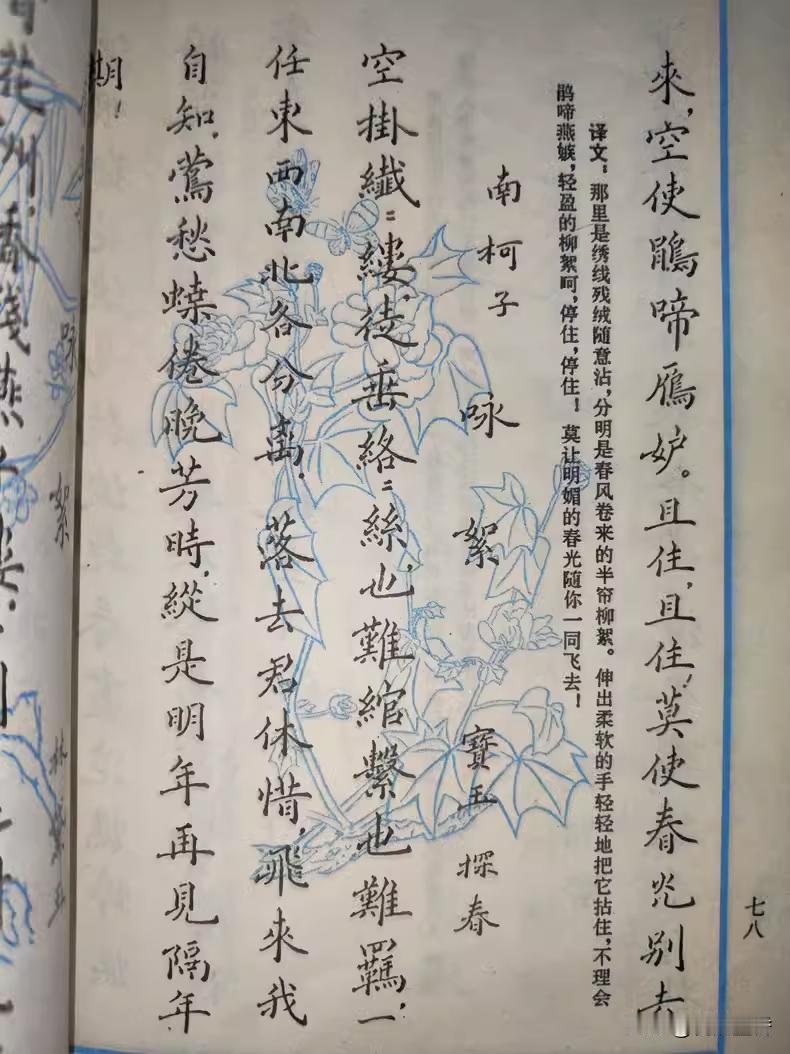 七八
來，空使鵑啼鴈妒。且住，且住！莫使春光别去
译文：那里是绣线残绒随意沾，分明是春风卷来的半帘柳絮。伸出柔软的手轻轻地把它拈住，不理会
鹃啼燕嫉，轻盈的柳絮呵，停住，停住！莫让明媚的春光随你一同飞去！
南柯子
咏絮 寶玉 探春
空掛纖=縷，徒垂絡=絲，也難綰繫也難羈，一
任東西南北各分离。落去君休惜，飛來我
自知。鶯愁蝶倦晚芳時，縱是明年再見隔年
期！
咏絮 林黛玉
花洲，香殘燕